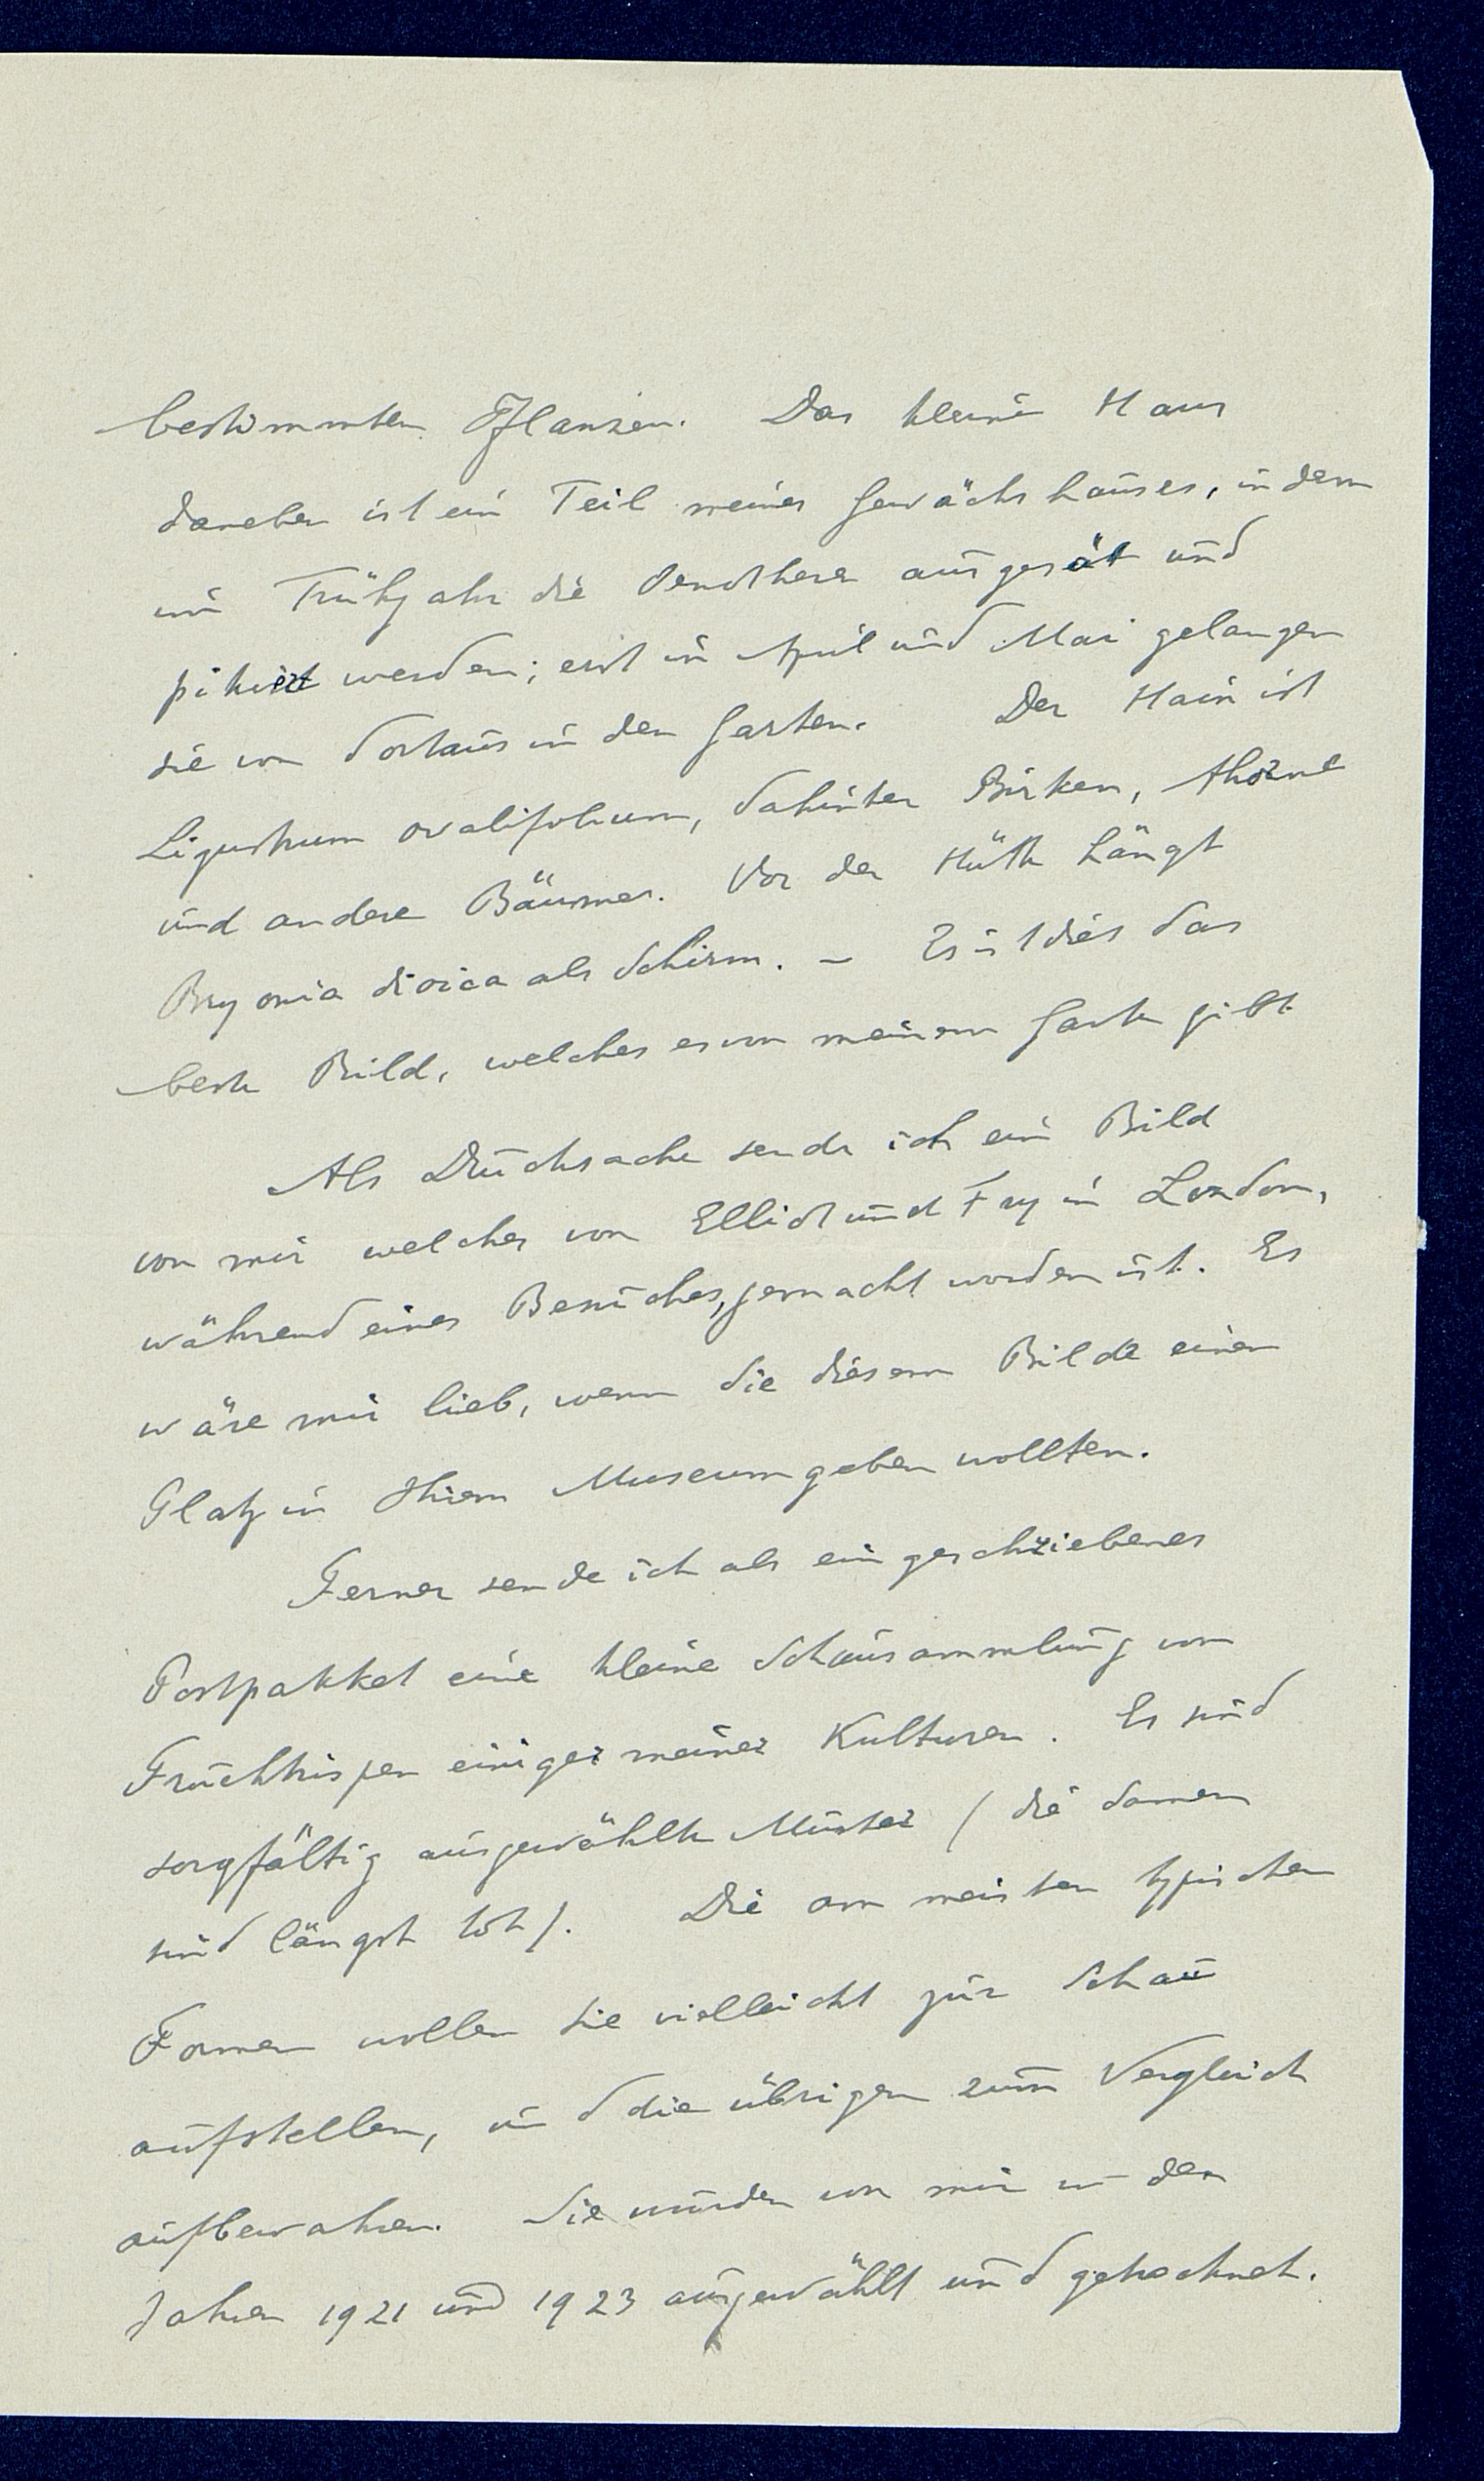 bestimmten Pflanzen. Das kleine Haus
daneben ist ein Teil meines Gewächshauses, in dem
im Frühjahr die Oenotheren ausgesät und
pikiert werden; erst in April und Mai gelangen
sie von dort aus in den Garten. Der Hain ist
Ligustrum ovalifolium, dahinter Birken, Ahorne
und andere Bäumer. Vor der Hütte hängt
Bryonia dioica als Schirm. – Es ist dies das
beste Bild, welches es von meinem Garten gibt.
Als Drucksache sende ich ein Bild
von mir welches von Elliot und Fry in London,
während eines Besuches, gemacht worden ist. Es
wäre mir lieb, wenn Sie diesem Bilde einen
Platz in Ihrem Museum geben wollten.
Ferner sende ich als eingeschriebenes
Postpakket eine kleine Schausammlung von
Fruchtrispen einiger meiner Kulturen. Es sind
sorgfältig ausgewählte Muster (die Samen
sind längst tot). Die am meisten typischen
Formen wollen Sie vielleicht zur Schau
aufstellen, und die übrigen zum Vergleich
aufbewahren. Sie wurden von mir in den
Jahren 1921 und 1923 ausgewählt und getrocknet.